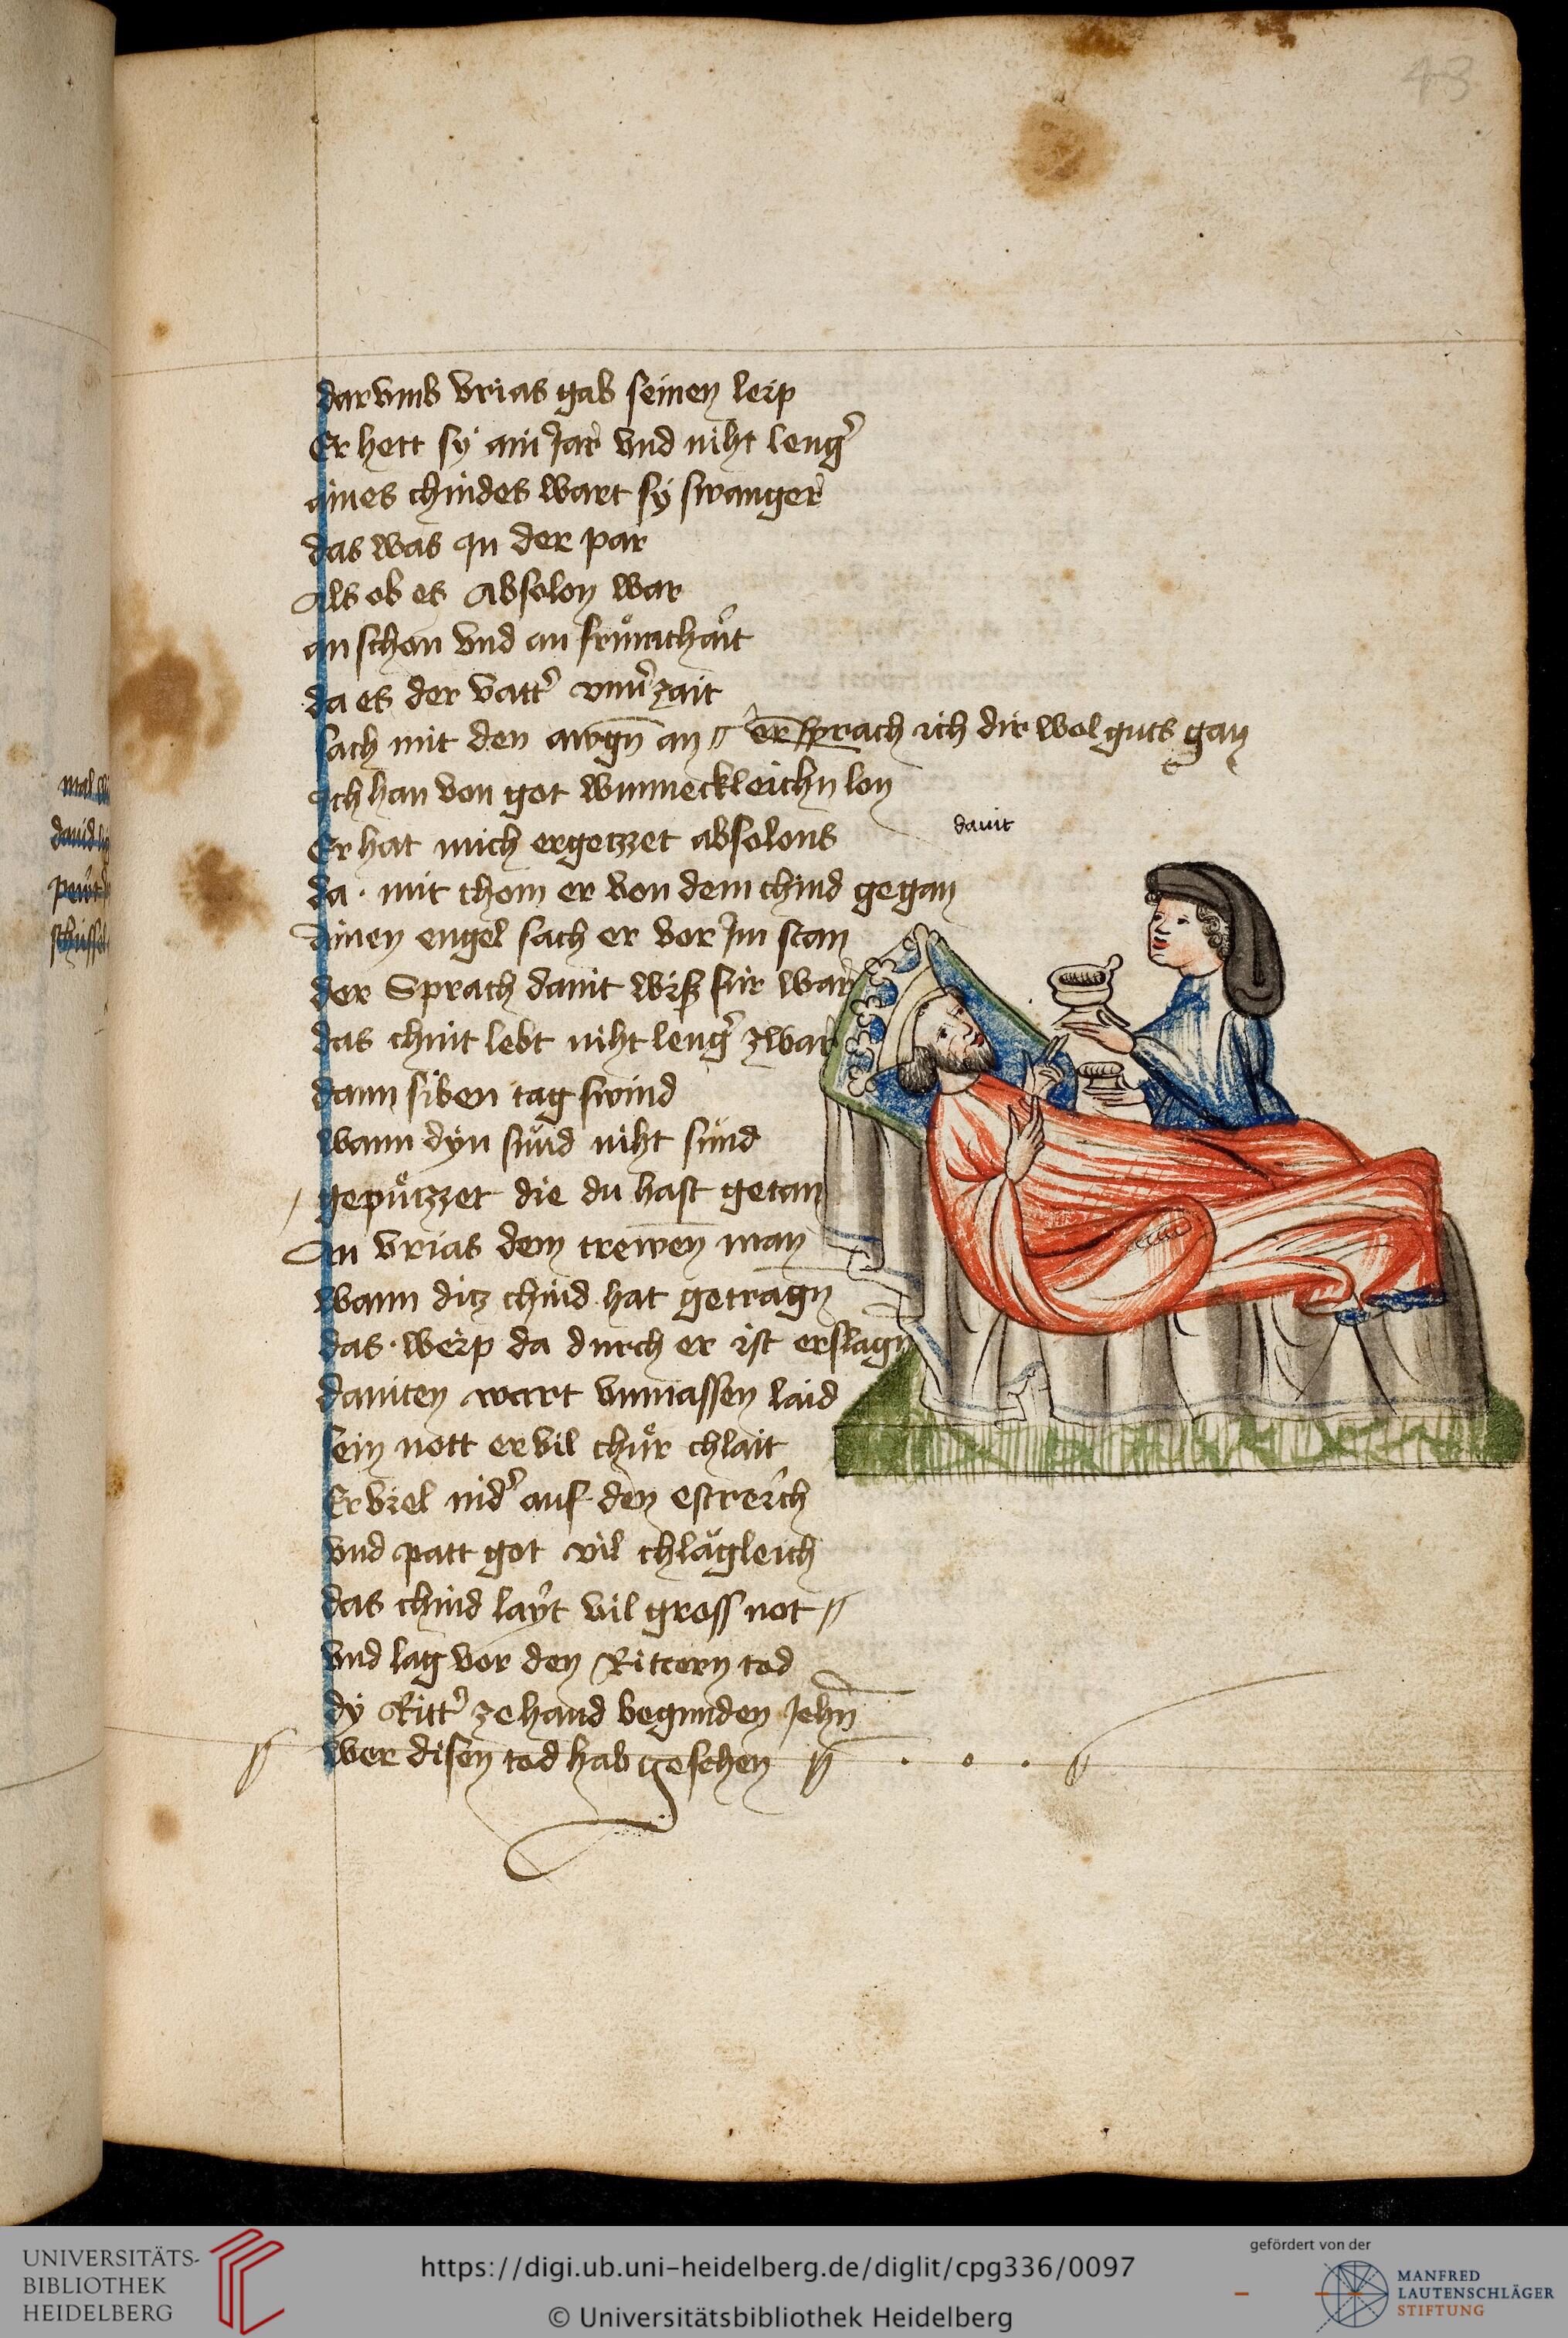 43
dar vmb vrias gab seinen leip
Er hett sÿ ain Jar vnd niht leng̉
aines chindes wart sÿ swanger
das was Jn der par
Als ob es Absolon war
an schon vnd an
da es der vatt̉ zait
sach mit den awgn̄ an // er sprach ich dir wol guts gan
Ich han von got wunneckleichn lon
Er hat mich ergetzzet absolons
dauit
da · mit chom er von dem chind gegan
Ainen engel sach er vor Jm stan
der Sprach dauit wiss für war
das chint lebt niht leng̉ zwar
dann siben tag swind
wann dÿn sünd niht sind
gepüzzet die du hast getan
An vrias dem trewen man
wann ditz chind hat getragn
das · weip da durch er ist erslagn̄
dauiten wart vnmassen laid
sein nott er vil chlait
Er viel nid̉ auf den estreich
vnd patt got vil chlägleich
das chind laÿt vil gross not //
vnd lag vor den Rittern tod
dÿ Ritt̉ ze hand begunden Jehn̄
wer disen tod hab gesehen
mal
dauid
UNIVERSITÄTS-
BIBLIOTHEK
HEIDELBERG
https://digi.ub.uni-heidelberg.de/diglit/cpg336/0097
© Universitätsbibliothek Heidelberg
gefördert von der
MANFRED
LAUTENSCHLÄGER
STIFTUNG